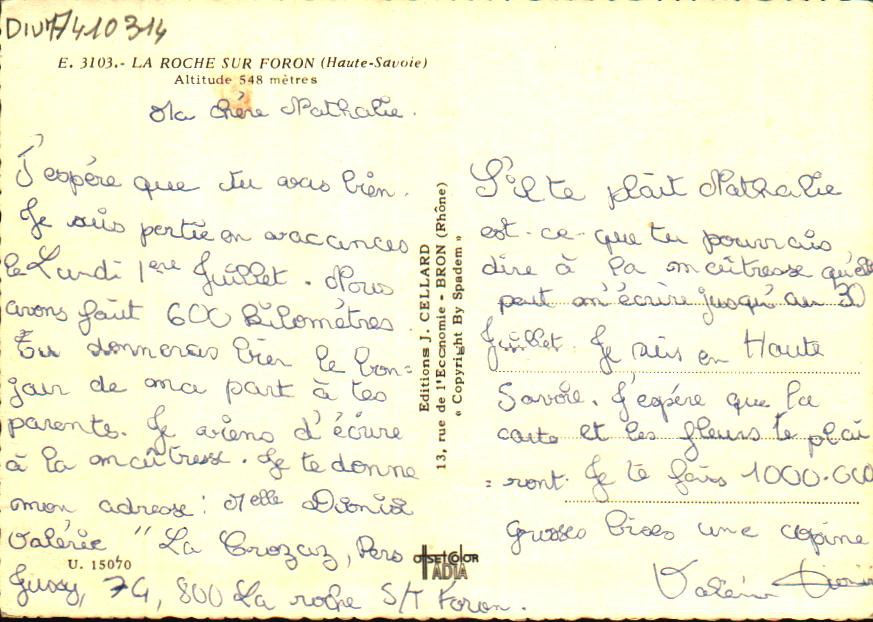 DIV17410314
E. 3103.- LA ROCHE SUR FORON (Haute-Savoie)
Altitude 548 mètres
Ma chère Nathalie.
J'espère que tu vas bien.
Je suis partie en vacances
le Lundi 1ere Juillet. Nous
avons fait 600 kilomètres.
Tu donneras bien le bon=
jour de ma part à tes
parents. Je viens d'écrire
à la maîtresse. Je te donne
mon adresse : Melle
Valérie " La Crozaz, Pers
Jussy, 74, 800 La roche S/T Foron.
U. 15070
Editions J. CELLARD
13, rue de l'Economie - BRON (Rhône)
« Copyright By Spadem »
OFFSETCOLOR
ADIA
S'il te plaît Nathalie
est-ce-que tu pourrais
dire à la maîtresse qu'elle
peut m'écrire jusqu'au 30
Juillet. Je suis en Haute
Savoie. J'espère que la
carte et les fleurs te plai
=ront. Je te fais 1000.000
grosses bises une copine
Valérie